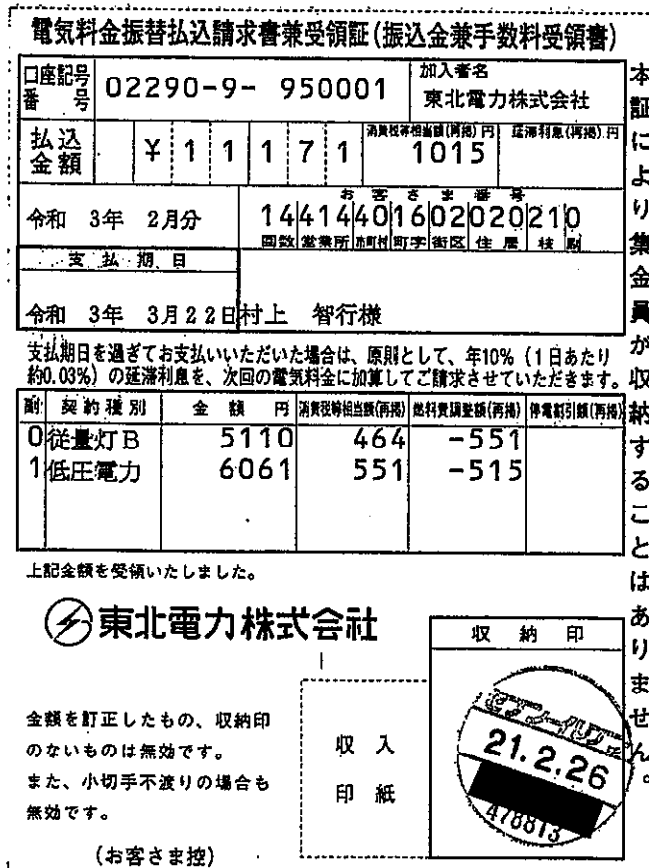 電気料金振替払込請求書兼受領証(振込金兼手数料受領書)
口座記号番号 02290-9- 950001 加入者名 東北電力株式会社
払込金額 ¥11171 消費税等相当額(再掲)円 1015 延滞利息(再掲)円
令和 3年 2月分 お客さま番号 14414401602020210
回数 営業所 市町村 町字 街区 住居 枝 副
支払期日
令和 3年 3月22日 村上 智行様
支払期日を過ぎてお支払いいただいた場合は、原則として、年10%(1日あたり
約0.03%)の延滞利息を、次回の電気料金に加算してご請求させていただきます。
副 契約種別 金額 円 消費税等相当額(再掲) 燃料費調整額(再掲) 停電割引額(再掲)
0 従量灯B 5110 464 -551
1 低圧電力 6061 551 -515
上記金額を受領いたしました。
東北電力株式会社
金額を訂正したもの、収納印
のないものは無効です。
また、小切手不渡りの場合も
無効です。
(お客さま控)
収入
印紙
収納印
セブン-イレブン
21.2.26
478813
本証により集金員が収納することはありません。